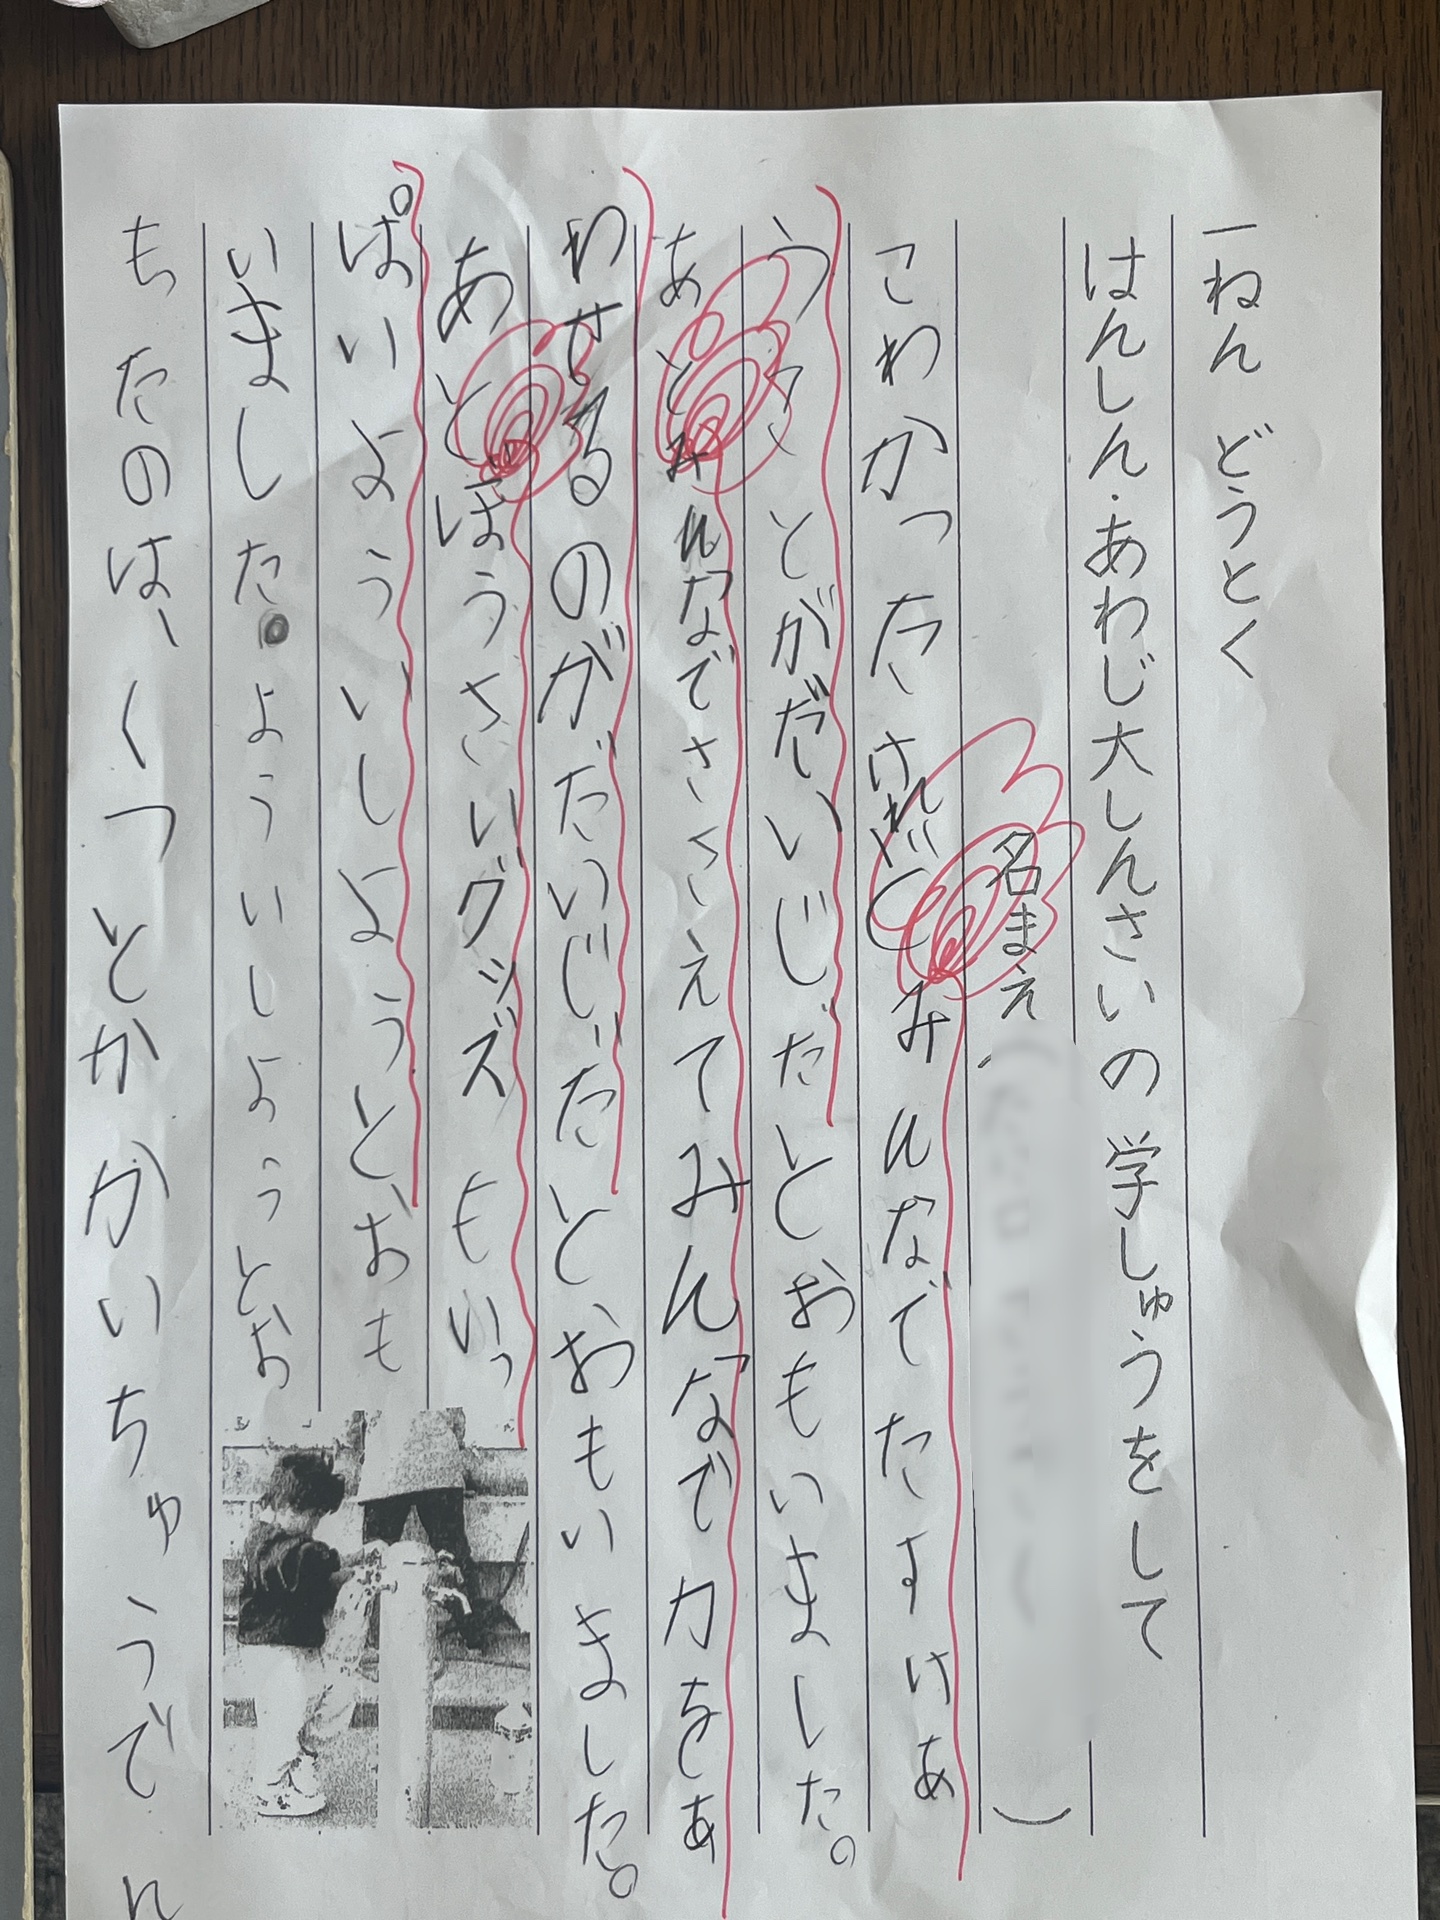 一ねん どうとく
はんしん・あわじ大しんさいの学しゅうをして
名まえ
こわかったけれどとみんなでたすけあ
うことがだいじだとおもいました。
あとみんなでささえてみんなで力をあ
わせるのがだいじだとおもいました。
あとぼうさいグッズもいっ
ぱいよういしようとおも
いました。よういしようとお
もたのは、くつとかかいちゅうでん